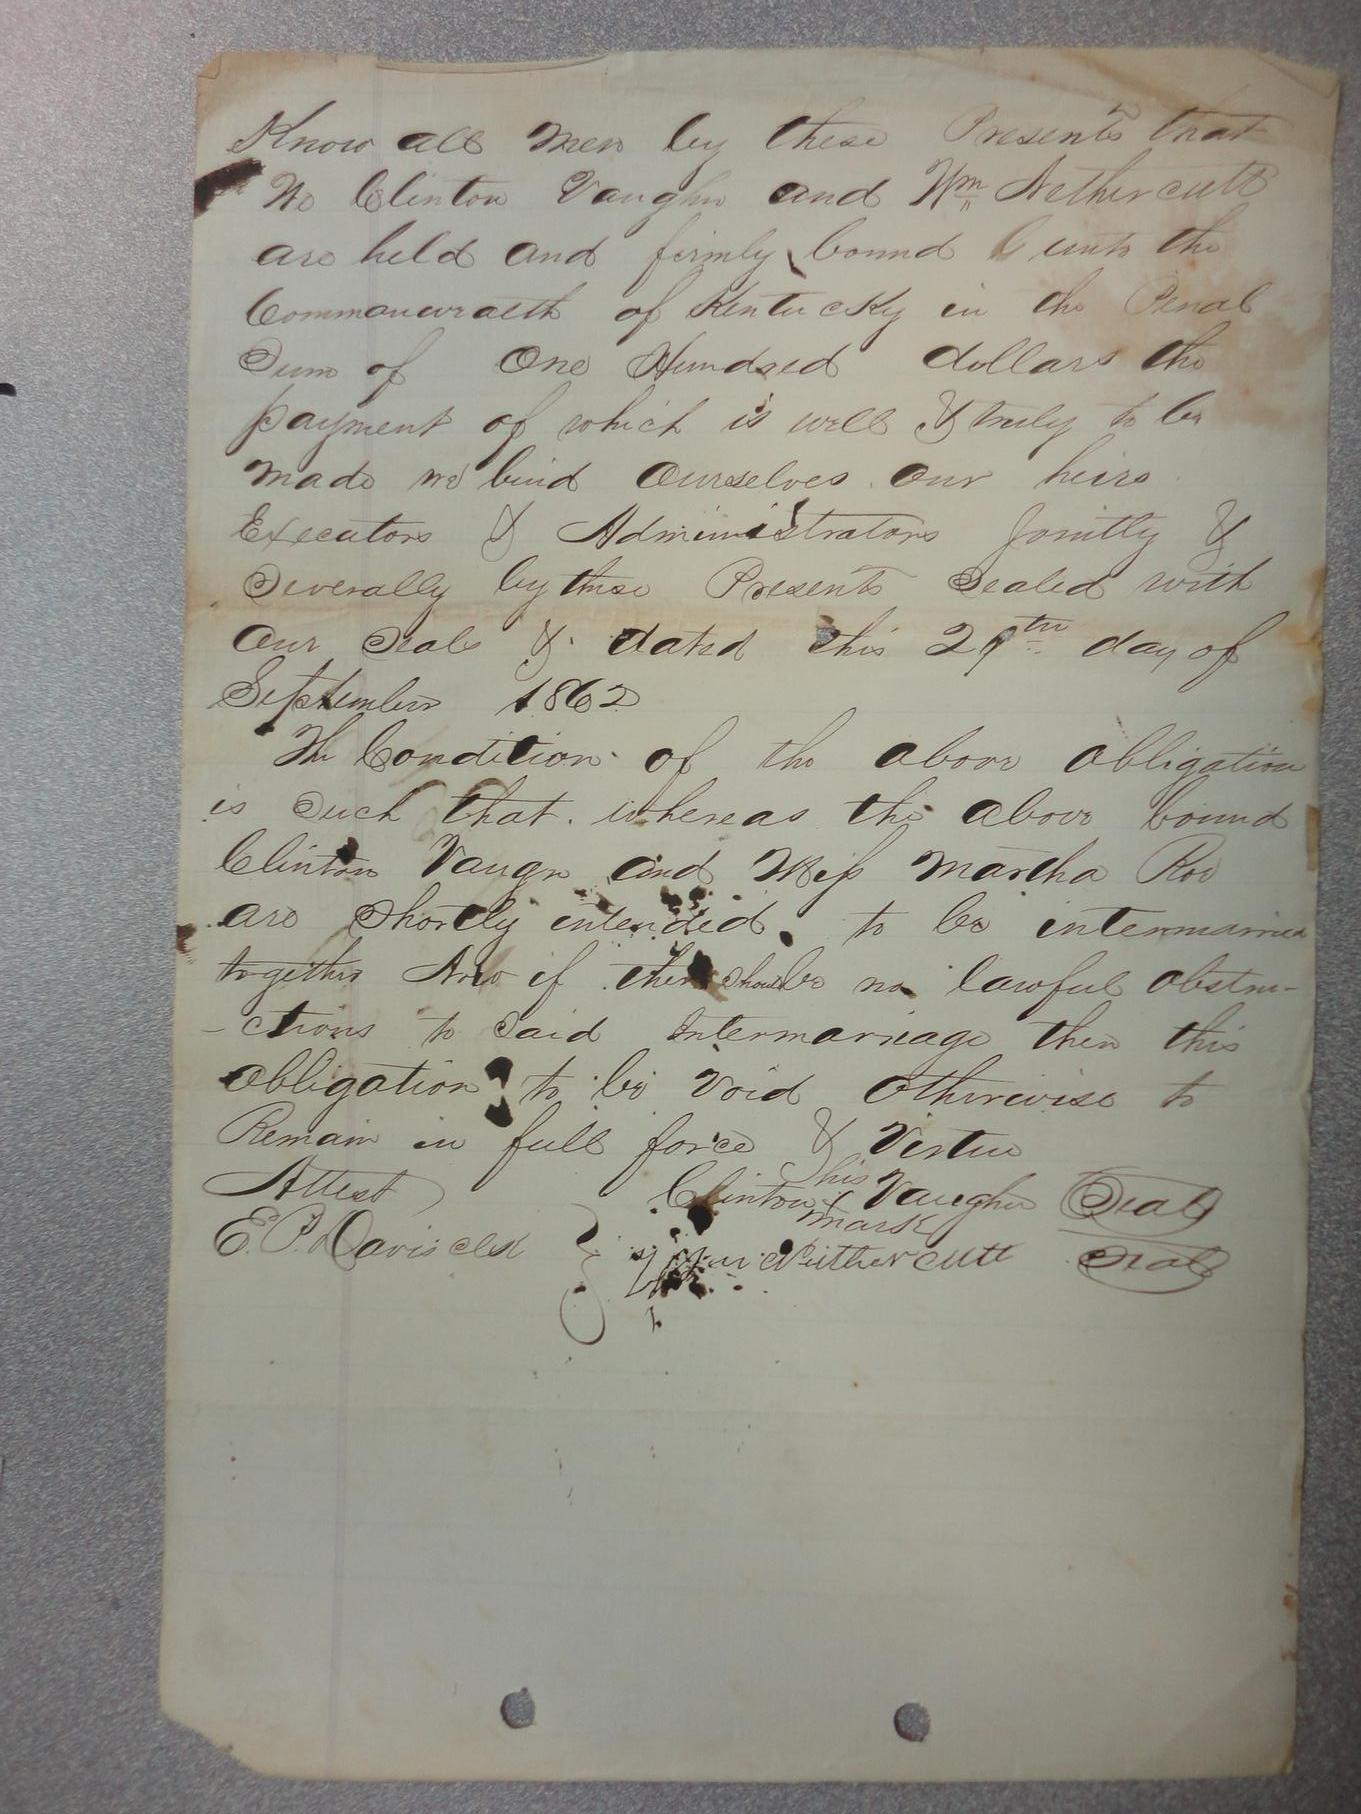 Know all Men by these Presents that
We Clinton Vaughn and Wm Nethercutt
are held and firmly bound unto the
Commonwealth of Kentucky in the Penal
Sum of One Hundred dollars the
payment of which is well & truly to be
made we bind Ourselves our heirs
Executors & Administrators Jointly &
Severally by these Presents Sealed with
Our Seals & dated this 29th day of
September 1862
The Condition of the above obligation
is Such that whereas the above bound
Clinton Vaugn and Miss Martha Roe
are Shortly intended to be intermarried
together Now if there should be no lawful obstru-
-ctions to Said Intermariage then this
obligation to be Void Otherwise to
Remain in full force & Virtue
Attest Clinton his mark Vaughn Seal
E. P. Davis clk Wm Neithercutt Seal